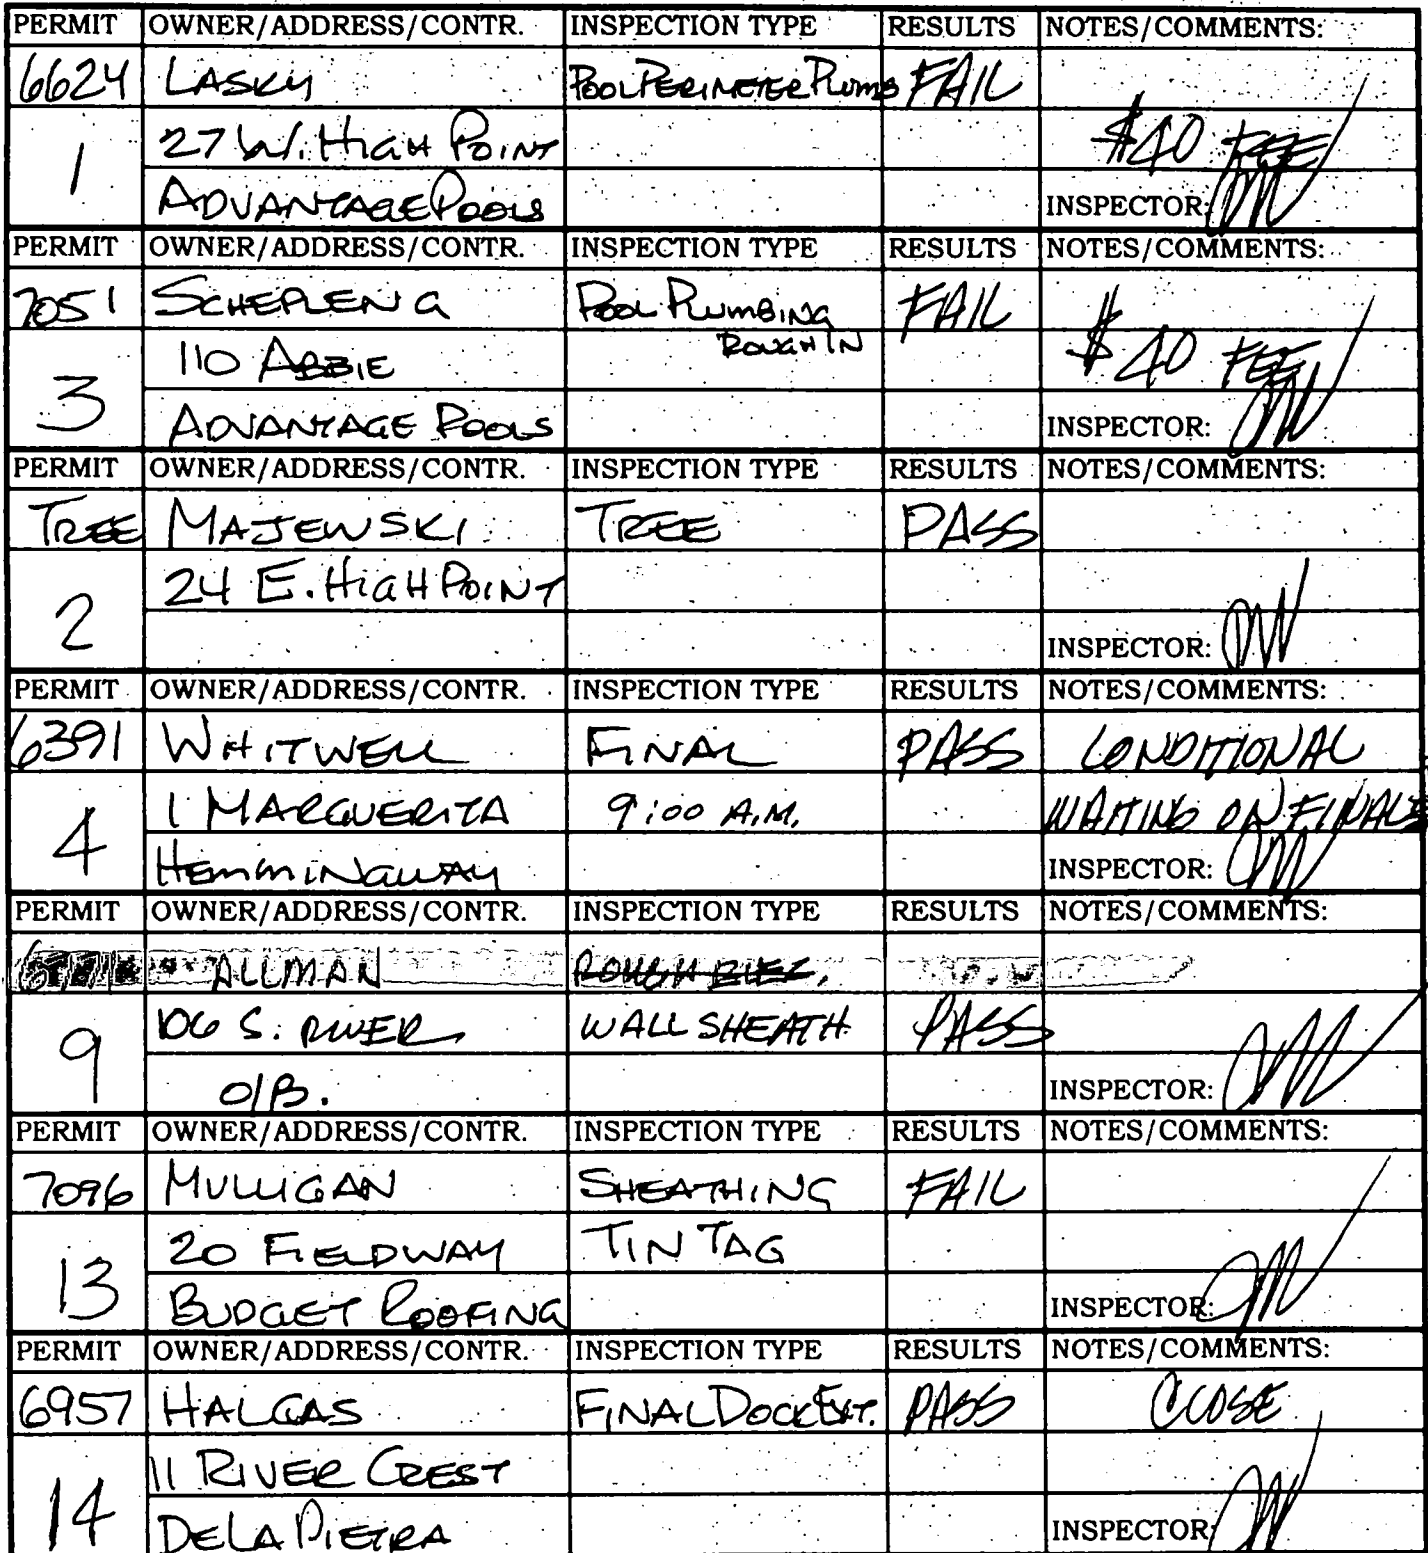 PERMIT OWNER/ADDRESS/CONTR. INSPECTION TYPE RESULTS NOTES/COMMENTS:
6624 LASKY POOL PERIMETER PLUMB FAIL
1 27 W. HIGH POINT $40 FEE
ADVANTAGE POOLS INSPECTOR:
PERMIT OWNER/ADDRESS/CONTR. INSPECTION TYPE RESULTS NOTES/COMMENTS:
7051 SCHEPLENG POOL PLUMBING FAIL
ROUGH IN
3 110 ABBIE $40 FEE
ADVANTAGE POOLS INSPECTOR:
PERMIT OWNER/ADDRESS/CONTR. INSPECTION TYPE RESULTS NOTES/COMMENTS:
TREE MAJEWSKI TREE PASS
2 24 E. HIGH POINT
INSPECTOR:
PERMIT OWNER/ADDRESS/CONTR. INSPECTION TYPE RESULTS NOTES/COMMENTS:
6391 WHITWELL FINAL PASS CONDITIONAL
4 1 MARGUERITA 9:00 A.M. WAITING ON FINALS
HEMMINGWAY INSPECTOR:
PERMIT OWNER/ADDRESS/CONTR. INSPECTION TYPE RESULTS NOTES/COMMENTS:
ALLMAN ROUGH ELEC.
9 106 S. RIVER WALL SHEATH PASS
O/B. INSPECTOR:
PERMIT OWNER/ADDRESS/CONTR. INSPECTION TYPE RESULTS NOTES/COMMENTS:
7096 MULLIGAN SHEATHING FAIL
13 20 FIELDWAY TIN TAG
BUDGET ROOFING INSPECTOR:
PERMIT OWNER/ADDRESS/CONTR. INSPECTION TYPE RESULTS NOTES/COMMENTS:
6957 HALGAS FINAL DOCK EXT. PASS CLOSE
14 11 RIVER CREST
DELA PIETRA INSPECTOR: